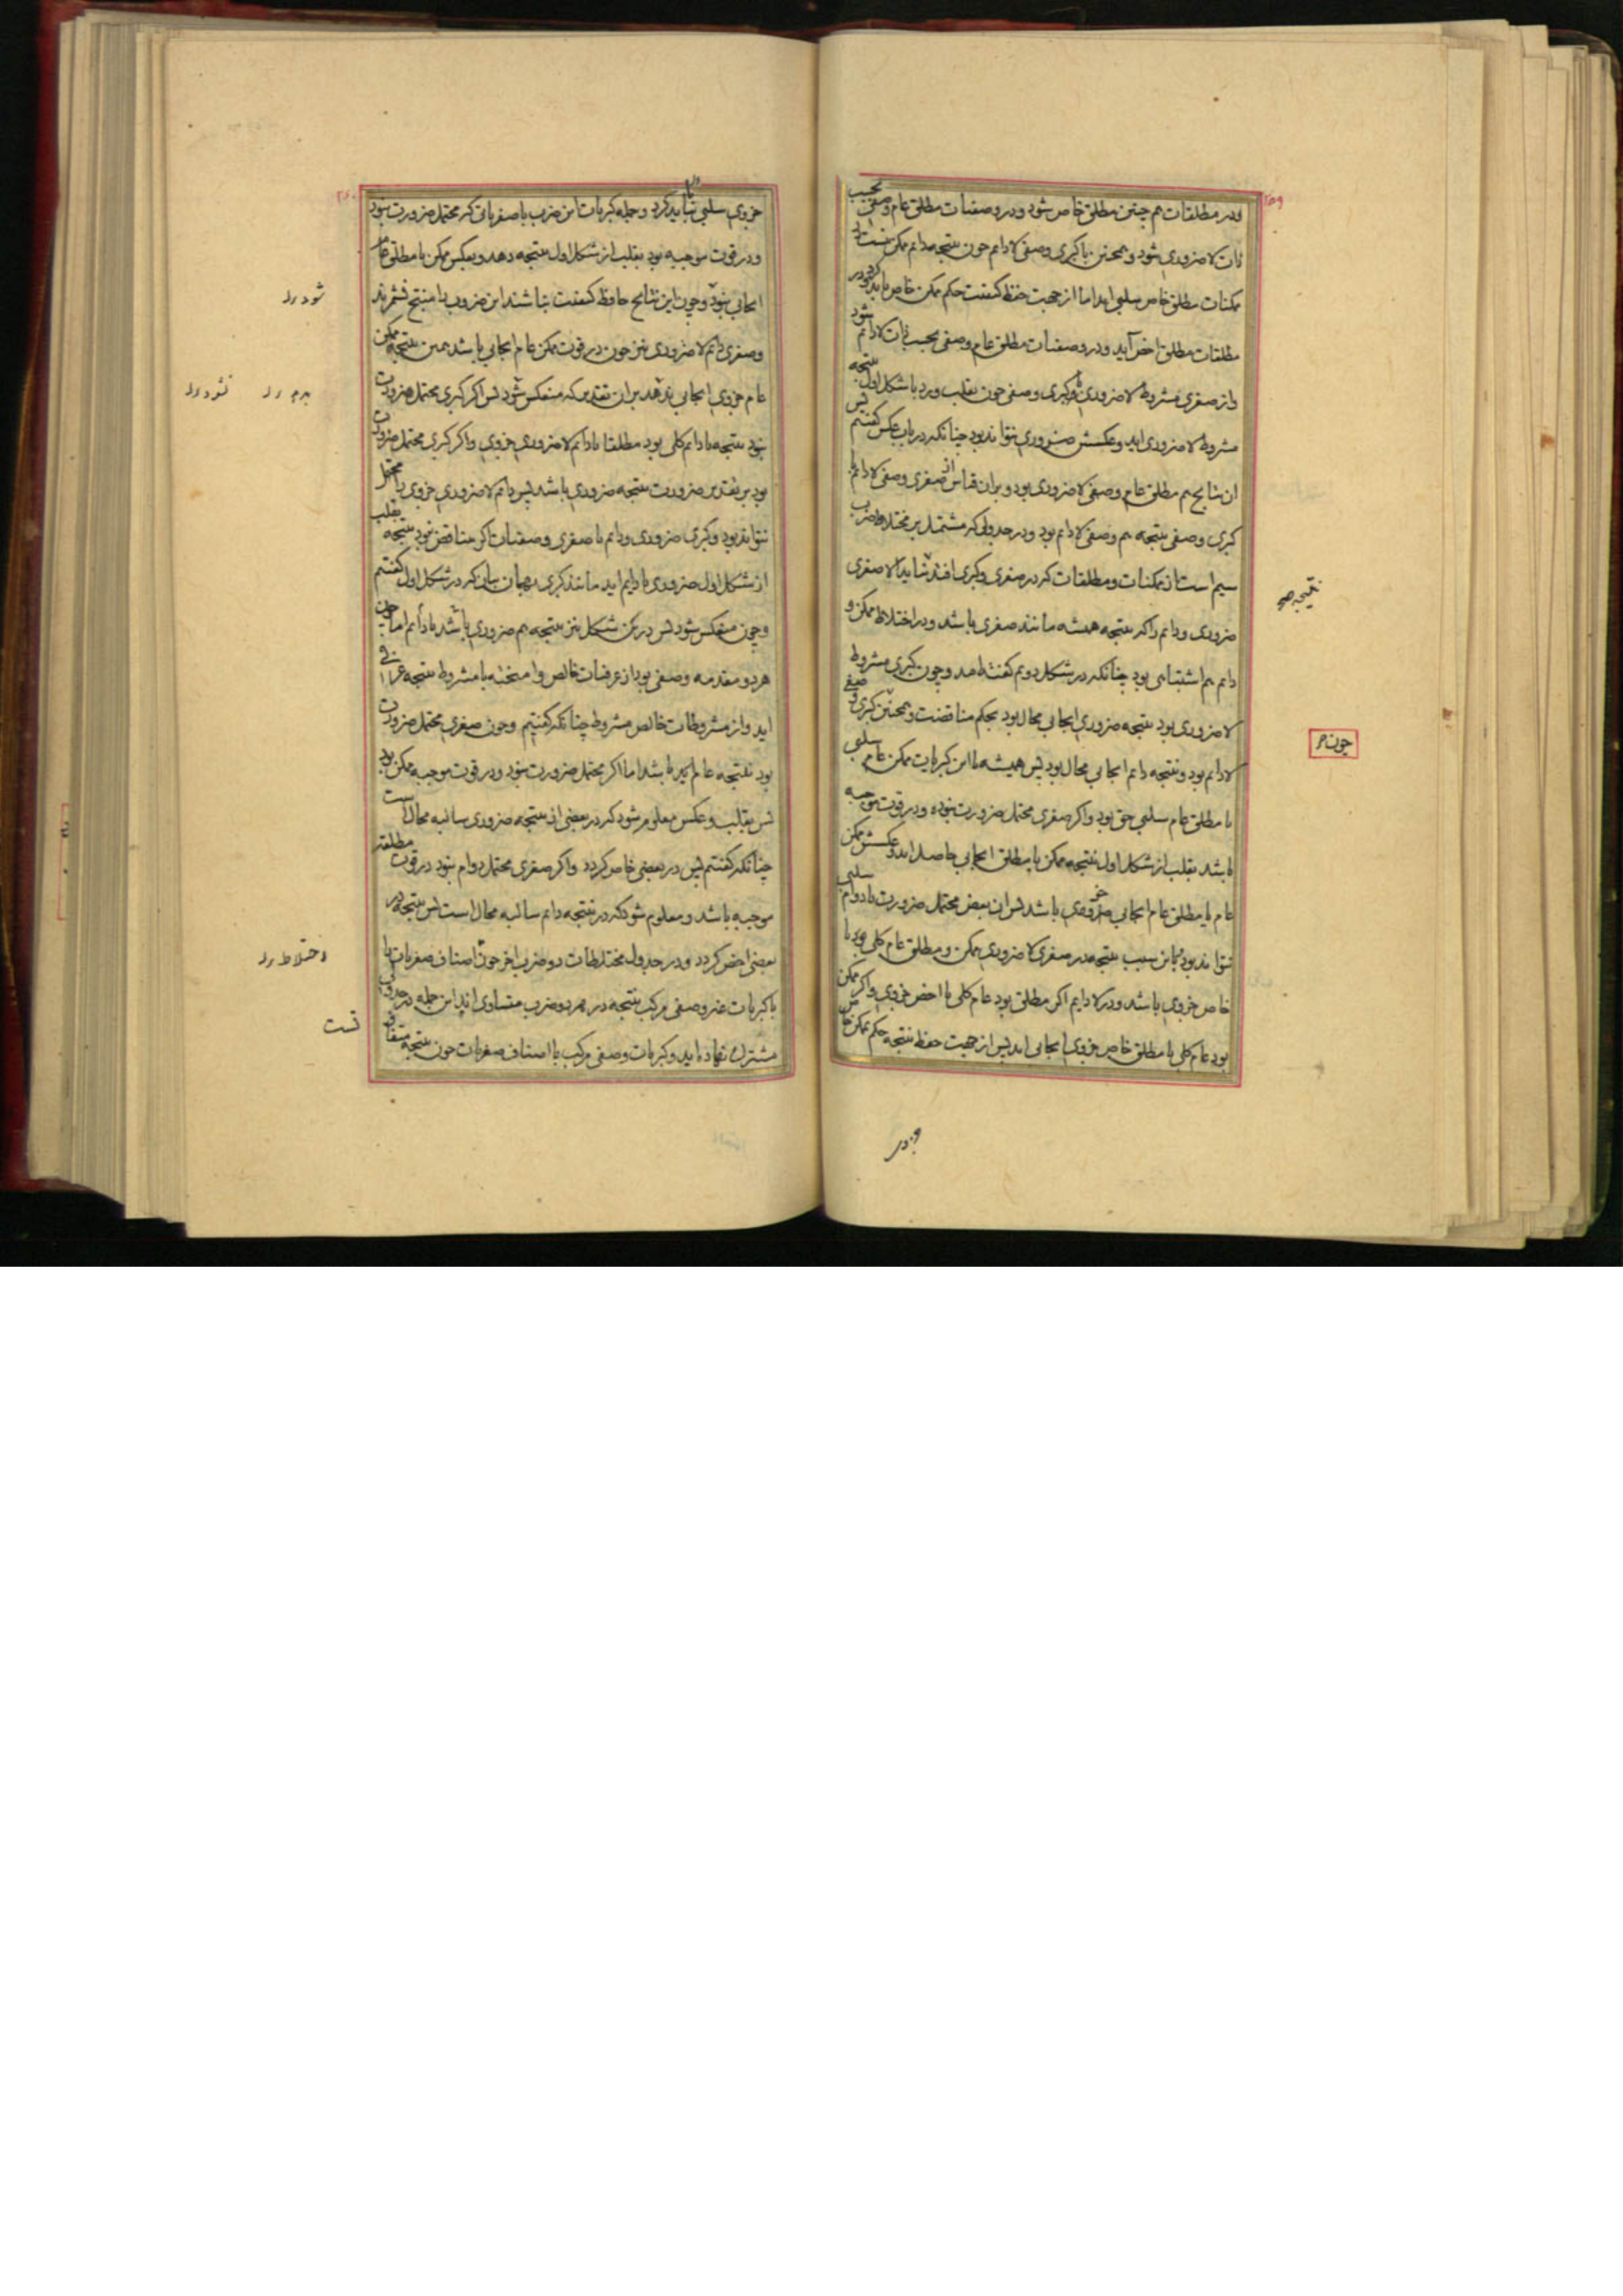 ۲۵۹
ودر مطلقات هم چنین مطلق خاص شود ودر وصفیات مطلق عام وصفی بحسب
ذات لاضروری شود و همچنین با کبری وصفی لادایم چون نتیجه دایم ممکن نیست از
ممکنات مطلق خاص سلبی اید اما از جهت حفظ کیفیت حکم ممکن خاص باید کرد ودر
مطلقات مطلق اخص آید ودر وصفیات مطلق عام وصفی بحسب ذات لادایم شود
واز صغری مشروط لاضروری وکبری وصفی چون بقلب ورد با شکل اول نتیجه
مشروط لاضروری اید وعکسش ضروری نتواند بود چنانکه در باب عکس گفتیم پس
ان نتایج هم مطلق عام وصفی لاضروری بود وبران قیاس از صغری وصفی لادایم با
کبری وصفی نتیجه هم وصفی لادایم بود ودر جدولی که مشتمل بر مختلطات ضرب
سیم است از ممکنات ومطلقات که در صغری وکبری افتد شاید الا صغری
ضروری ودایم را که نتیجه همیشه مانند صغری باشد ودر اختلاط ممکن و
دایم هم اشتباهی بود چنانکه در شکل دویم گفته امد وچون کبری مشروط
لاضروری بود نتیجه ضروری ایجابی محال بود بحکم مناقضت وهمچنین کبری وصفی
لادایم بود ونتیجه دایم ایجابی محال بود پس همیشه با این کبریات ممکن عام سلبی
یا مطلق عام سلبی حق بود واگر صغری محتمل ضرورت نبوده ودر قوت موجبه
باشد بقلب از شکل اول نتیجه ممکن یا مطلق ایجابی حاصل اید وعکسش ممکن
عام یا مطلق عام ایجابی جزوی باشد پس ان بعض محتمل ضرورت یا دوام سلبی
نتواند بود باین سبب نتیجه در صغری لاضروری ممکن ومطلق عام کلی بود یا
خاص جزوی باشد ودر لادایم اگر مطلق بود عام کلی یا اخص جزوی واگر ممکن
بود عام کلی یا مطلق خاص جزوی ایجابی اید پس از جهت حفظ نتیجه حکم ممکن خاص
نتیجه صح
چون م
۲۶۰
جزوی سلبی بباید کرد وجمله کبریات این ضرب با صغریاتی که محتمل ضرورت نبود
ودر قوت موجبه بود بقلب از شکل اول نتیجه دهد وبعکس ممکن یا مطلق عام
ایجابی بود وچون این نتایج حافظ کیفیت نباشند این ضروب را منتج نشمرند
وصغری دایم لاضروری نیز چون در قوت ممکن عام ایجابی باشد همین نتیجه ممکن
عام جزوی ایجابی بدهد بران تقدیر که منعکس شود پس اگر کبری محتمل ضرورت
نبود نتیجه یا دایم کلی بود مطلقا یا دایم لاضروری جزوی واگر کبری محتمل ضرورت
بود بر تقدیر ضرورت نتیجه ضروری باشد پس دایم لاضروری جزوی را محتمل
نتواند بود وکبری ضروری ودایم با صغری وصفیات اگر متناقض نبود نتیجه بقلب
از شکل اول ضروری یا دایم اید مانند کبری بهمان بیان که در شکل اول گفتیم
وچون منعکس شود پس درین شکل نیز نتیجه هم ضروری باشد یا دایم اما چون
هر دو مقدمه وصفی بود از عرفیات خالص وامیخته با مشروط نتیجه عرفی
اید واز مشروطات خالص مشروط چنانکه گفتیم وچون صغری محتمل ضرورت
بود نتیجه عام تر باشد اما اگر محتمل ضرورت نبود ودر قوت موجبه ممکن بود
پس بقلب وعکس معلوم شود که در بعضی ان نتیجه ضروری سالبه محال است
چنانکه گفتیم پس در بعضی خاص گردد واگر صغری محتمل دوام نبود در قوت مطلقه
موجبه باشد ومعلوم شود که در نتیجه دایم سالبه محال است پس نتیجه در
بعضی اخص گردد ودر جدول مختلطات دو ضرب اخر چون اصناف صغریات با
با کبریات غیر وصفی مرکب نتیجه در هر دو ضرب متساوی اند این جمله در جدول
مشترک نهاده اید وکبریات وصفی مرکب با اصناف صغریات چون نتیجه متفاوت
شود را
نشود را
اختلاط را
نیست
ودر